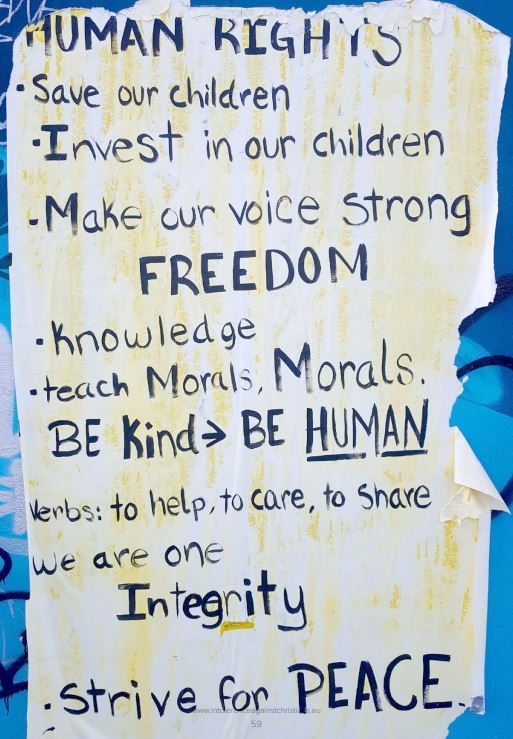 HUMAN RIGHTS
• Save our children
• Invest in our children
- Make our voice strong
FREEDOM
• Knowledge
• teach Morals, Morals.
BE Kind → BE HUMAN
Verbs: to help, to care, to share
we are one
Integrity
• strive for PEACE.
www.intoleranceagainstchristians.eu
59